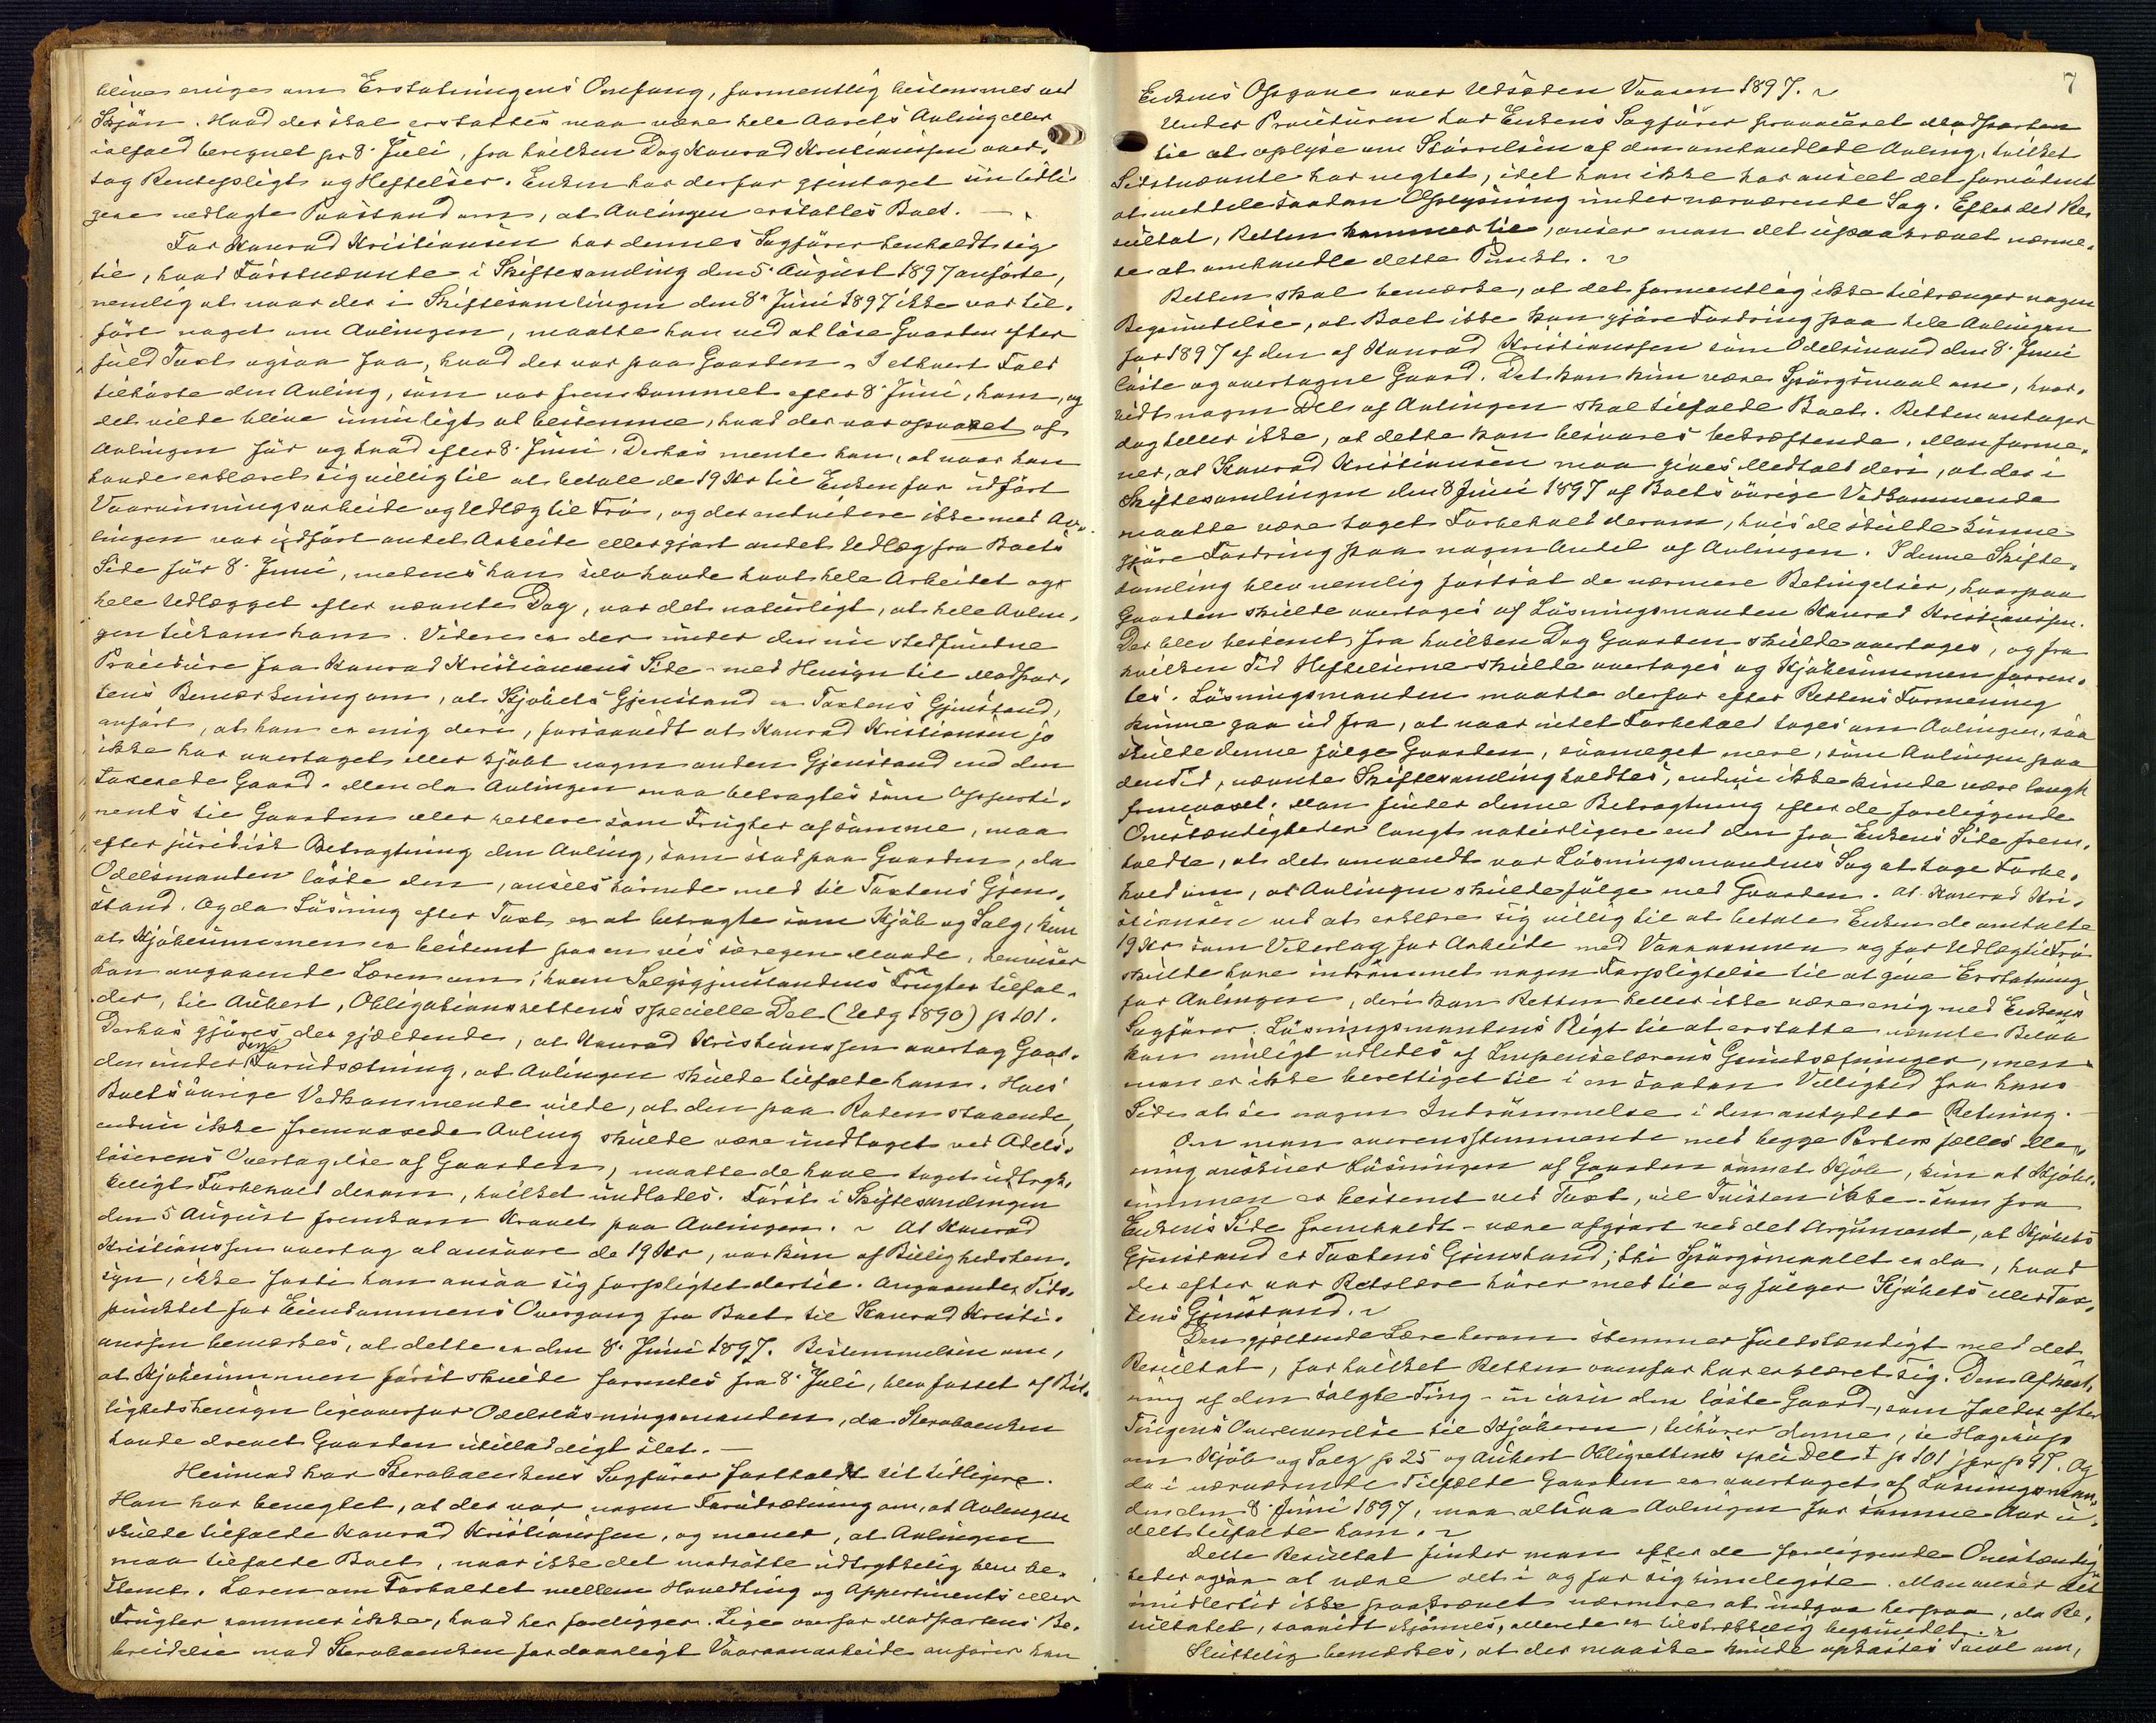 blive enige om Erstatningens Omfang, formentlig bestemmes ved
Skjøn. Hvad der skal erstattes maa være hele Aarets Avling eller
ialfald beregnet pr 8. Juli, fra hvilken Dag Konrad Kristianssen over-
tog Rentepligt og Heftelser. Enken har derfor gjentaget sin tidli-
gere nedlagte Paastand om, at Avlingen erstattes Boet. —
For Konrad Kristiansen har dennes Sagfører henholdt sig
til, hvad Førstnævnte i Skiftesamling den 5. August 1897 anførte,
nemlig at naar der i Skiftesamlingen den 8. Juni 1897 ikke var til-
ført noget om Avlingen, maatte han ved at løse Gaarden efter
fuld Taxt ogsaa faa, hvad der var paa Gaarden. I ethvert Fald
tilhørte den Avling, som var fremkommet efter 8. Juni, ham, og
det vilde blive umuligt at bestemme, hvad der var opvoxet af
Avlingen før og hvad efter 8. Juni. Derhos mente han, at naar han
havde erklæret sig villig til at betale de 19 Kr til Enken for udført
Vaaronningsarbeide og Udlæg til Frø, og der endvidere ikke med Av-
lingen var udført andet Arbeide eller gjort andet Udlæg fra Boets
Side før 8. Juni, medens han selv havde havt hele Arbeidet og
hele Udlægget efter nævnte Dag, var det naturligt, at hele Avlin-
gen tilkom ham. Videre er der under den nu stedfundne
Procedure fra Konrad Kristiansens Side med Hensyn til Modpar-
tens Bemærkning om, at Kjøbets Gjenstand er Taxtens Gjenstand,
anført, at han er enig deri, forsaavidt at Konrad Kristiansen jo
ikke har overtaget eller kjøbt nogen anden Gjenstand end den
taxerede Gaard. Men da Avlingen maa betragtes som Apperti-
nents til Gaarden eller rettere som Frugter af samme, maa
efter juridisk Betragtning den Avling, som stod paa Gaarden, da
Odelsmanden løste den, ansees hørende med til Taxtens Gjen-
stand. Og da Løsning efter Taxt er at betragte som Kjøb og Salg, kun
at Kjøbesummen er bestemt paa en vis særegen Maade, henviser
han angaaende Læren om, hvem Salgsgjenstandens Frugter tilfal-
der, til Aubert, Obligationsrettens specielle Del (Udg 1890) p 101.
Derhos gjøres der gjældende, at Konrad Kristianssen overtog Gaar-
den under den Forudsætning, at Avlingen skulde tilfalde ham. Hvis
Boets øvrige Vedkommende vilde, at den paa Roden staaende,
endnu ikke fremvoxede Avling skulde være undtaget ved Odels-
løserens Overtagelse af Gaarden, maatte de have taget udtryk-
keligt Forbehold derom, hvilket undlodes. Først i Skiftesamlingen
den 5 August fremkom Kravet paa Avlingen. ~ At Konrad
Kristianssen overtog at ansvare de 19 Kr, var kun af Billighedshen-
syn, ikke fordi han ansaa sig forpligtet dertil. Angaaende Tids-
punktet for Eiendommens Overgang fra Boet til Konrad Kristi-
anssen bemærkes, at dette er den 8. Juni 1897. Bestemmelsen om,
at Kjøbesummen først skulde forrentes fra 8. Juli, blev fattet af Bil-
lighedshensyn ligeoverfor Odelsløsningsmanden, da Skrobaenken
havde drevet Gaarden utilladeligt slet. —
Herimod har Skrobaenkens Sagfører fastholdt sit tidligere.
Han har benegtet, at der var nogen Forudsætning om, at Avlingen
skulde tilfalde Konrad Kristianssen, og mener, at Avlingen
maa tilfalde Boet, naar ikke det modsatte udtrykkelig blev be-
stemt. Læren om Forholdet mellem Hovedting og Appertinents eller
Frugter rammer ikke, hvad her foreligger. Lige overfor Modpartens Be-
breidelse mod Skrobaenken for daarligt Vaaronnarbeide anfører han
7
Enkens Opgave over Udsæden Vaaren 1897. ~
Under Proceduren har Enkens Sagfører provoceret Modparten
til at oplyse om Størrelsen af den omhandlede Avling, hvilket
Sidstnævnte har negtet, idet han ikke har anseet det fornødent
at meddele saadan Oplysning under nærværende Sag. Efter det Re-
sultat, Retten kommer til, anser man det upaakrævet nærme-
re at omhandle dette Punkt. ~
Retten skal bemærke, at det formentlig ikke tiltrænger nogen
Begrundelse, at Boet ikke kan gjøre Fordring paa hele Avlingen
for 1897 af den af Konrad Kristianssen som Odelsmand den 8. Juni
løste og overtagne Gaard. Det kan kun være Spørgsmaal om, hvor-
vidt nogen Del af Avlingen skal tilfalde Boet. Retten antager
dog heller ikke, at dette kan besvares bekræftende. Man forme-
ner, at Konrad Kristiansen maa gives Medhold deri, at der i
Skiftesamlingen den 8 Juni 1897 af Boets øvrige Vedkommende
maatte være taget Forbehold derom, hvis de skulde kunne
gjøre Fordring paa nogen Andel af Avlingen. I denne Skifte-
samling blev nemlig fastsat de nærmere Betingelser, hvorpaa
Gaarden skulde overtages af Løsningsmanden Konrad Kristianssen.
Der blev bestemt, fra hvilken Dag Gaarden skulde overtages, og fra
hvilken Tid Heftelserne skulde overtages og Kjøbesummen forren-
tes. Løsningsmanden maatte derfor efter Rettens Formening
kunne gaa ud fra, at naar intet Forbehold toges om Avlingen, saa
skulde denne følge Gaarden, saameget mere, som Avlingen paa
den Tid, nævnte Skiftesamling holdtes, endnu ikke kunde være langt
fremvoxet. Man finder denne Betragtning efter de foreliggende
Omstændigheder langt naturligere end den fra Enkens Side frem-
holdte, at det omvendt var Løsningsmandens Sag at tage Forbe-
hold om, at Avlingen skulde følge med Gaarden. At Konrad Kri-
stiansen ved at erklære sig villig til at betale Enken de omtalte
19 Kr som Vederlag for Arbeide med Vaaronnen og for Udlæg til Frø
skulde have indrømmet nogen Forpligtelse til at give Erstatning
for Avlingen, deri kan Retten heller ikke være enig med Enkens
Sagfører. Løsningsmandens Pligt til at erstatte nævnte Beløb
kan muligt udledes af Impenselærens Grundsætninger, men
man er ikke berettiget til i en saadan Villighed fra hans
Side at se nogen Indrømmelse i den antydede Retning. —
Om man overensstemmende med begge Parters fælles Me-
ning anskuer Løsningen af Gaarden som et Kjøb, kun at Kjøbe-
summen er bestemt ved Taxt, vil Tvisten ikke – som fra
Enkens Side fremholdt – være afgjort ved det Argument, at Kjøbets
Gjenstand er Taxtens Gjenstand; thi Spørgsmaalet er da, hvad
der efter vor Retslære hører med til og følger Kjøbets eller Tax-
tens Gjenstand. ~
Den gjældende Lære herom stemmer fuldstændigt med det
Resultat, for hvilket Retten ovenfor har erklæret sig. Den Afkast-
ning af den solgte Ting – in casu den løste Gaard –, som falder efter
Tingens Overleverelse til Kjøberen, tilhører denne, se Hagerup
om Kjøb og Salg p 25 og Aubert Obligrettens speci Del I p 101 jfr p 97. Og
da i nærværende Tilfælde Gaarden er overtaget af Løsningsman-
den den 8. Juni 1897, maa altsaa Avlingen for samme Aar u-
delt tilfalde ham. ~
Dette Resultat finder man efter de foreliggende Omstændig-
heder ogsaa at være det i og for sig rimeligste. Man anser det
imidlertid ikke paakrævet nærmere at indgaa herpaa, da Re-
sultatet, saavidt skjønnes, allerede er tilstrækkelig begrundet. ~
Sluttelig bemærkes, at der maaske kunde opkastes Tvivl om,